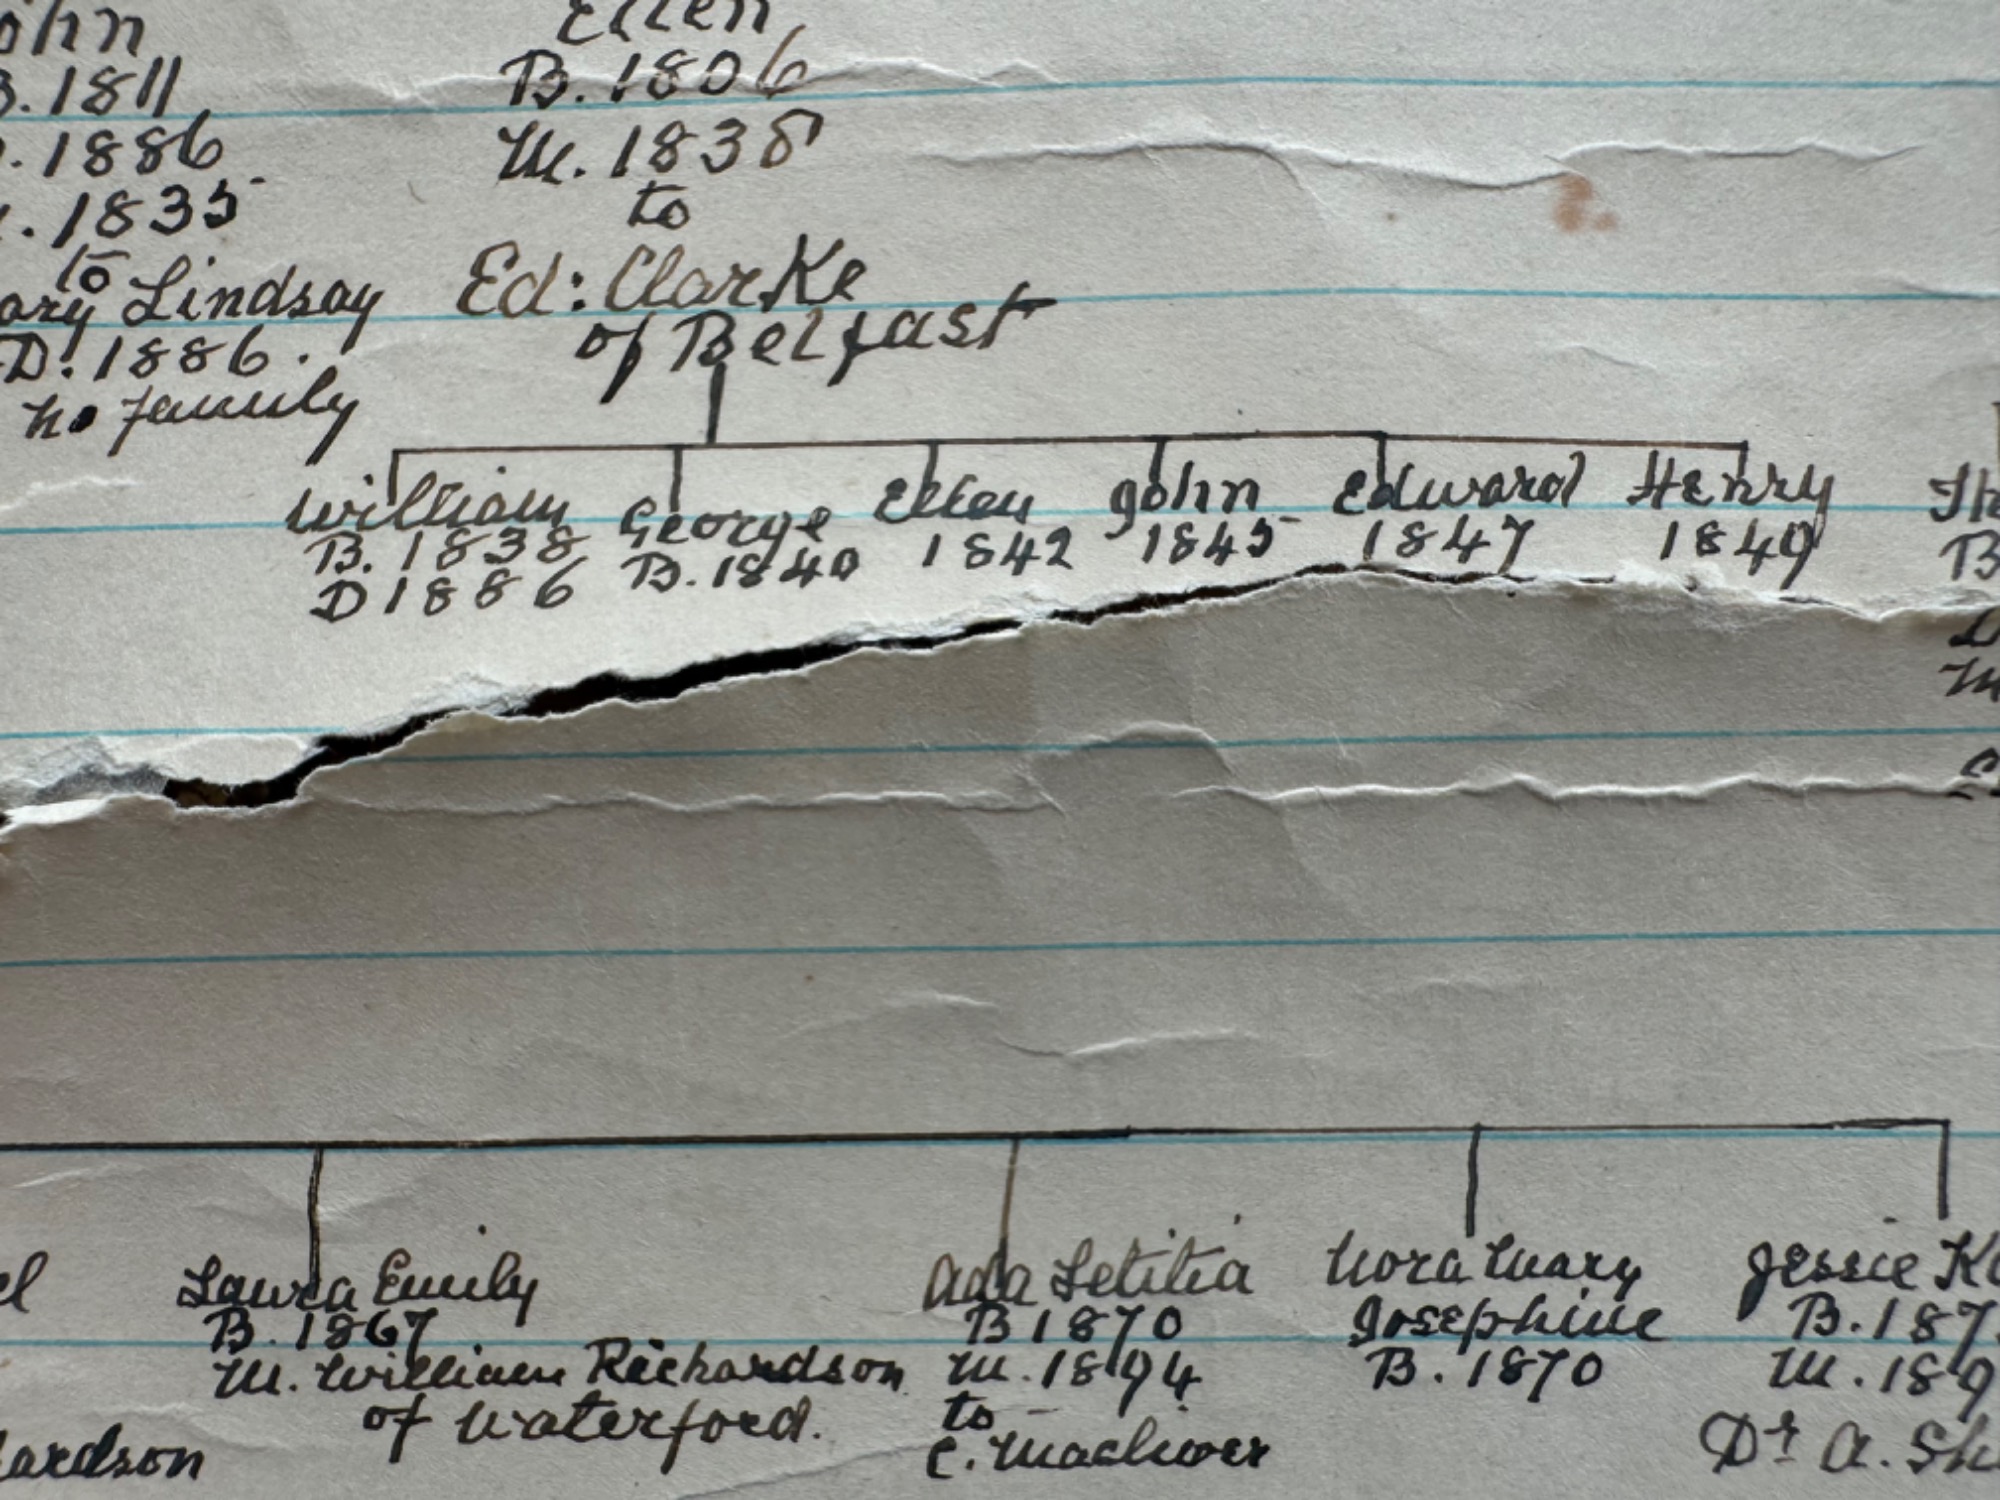 John
B. 1811
D. 1886
M. 1835
to
Mary Lindsay
D. 1886.
no family
Ellen
B. 1806
M. 1835
to
Ed: Clarke
of Belfast
William
B. 1838
D 1886
George
B. 1840
Ellen
1842
John
1845
Edward
1847
Henry
1849
B
M
Laura Emily
B. 1867
M. William Richardson
of Waterford.
ardson
Ada Letitia
B 1870
M. 1894
to
C.
Nora Mary
Josephine
B. 1870
Jessie
B. 187
M. 189
Dr A. Sh